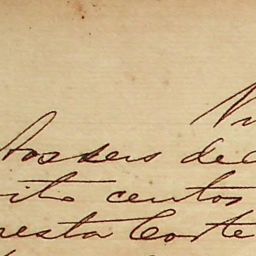 Aos seis de
oito centos
nesta Corte